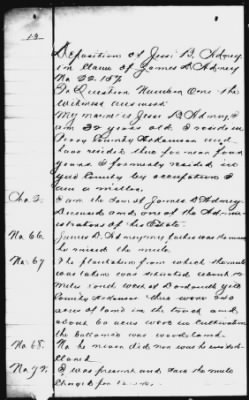 13
Deposition of Jesse B. Adney
in Claim of James D. Adney
No 22.157
To Question Number One the
witness answered
My name is Jesse B. Adney, I
am 32 years old I reside in
Perry County Arkansas and
have resided there for near four
years. I formerly resided in
Yell County by occupation I
am a miller.
Cho 2. I am the son of James D. Adney
Deceased and one of the Admin-
istrators of his Estate.
No. 66. James D. Adney my father was the owner
he raised the mule.
No. 67 The plantation from which the mule
was taken was situated about
miles west of Dardanelle Yell
County Arkansas there were
acres of land in the tract and
about 60 acres were in cultivation
the balance was woodland.
No. 68. No he never did nor was he
No. 72. I was present and saw the mule